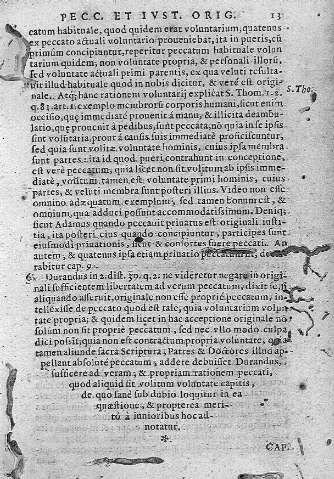 PECC. ET IVST. ORIG. 13
catum habituale, quod quidem erat voluntarium, quatenus
ex peccato actuali voluntario proueniebat, ita in pueris, cum
primùm concipiuntur, reperitur peccatum habituale volun
tarium quidem, non voluntate propria, & personali illorũ,
sed voluntate actuali primi parentis, ex qua veluti resulta-
uit illud habituale quod in nobis dicitur, & verè est origi-
nale. Atq; hanc rationem voluntarij explicat S. Thom. 1. 2.
S. Tho.
q. 81. art. 1. exemplo mẽbrorũ corporis humani, sicut enim
occisio, quę immediatè prouenit à manu, & illicita deambu-
latio, quę prouenit à pedibus, sunt peccata, nõ quia in se ipsis
sint volũtaria, prout à causis suis immediatè proficiscuntur,
sed quia sunt volitæ voluntate hominis, cuius ipsa membra
sunt partes: ita id quod pueri contrahunt in conceptione,
est verè peccatum, quia licet non sit volitum ab ipsis imme-
diatè, volitum tamen est voluntate primi hominis, cuius
partes, & veluti membra sunt posteri illius. Video non esse
omnino adæquatum exemplum, sed tamen bonum est, &
omnium, quæ adduci possunt accommodatissimum. Deniq;
sicut Adamus quando peccauit priuatus est originali iusti-
tia, ita posteri eius quando concipiuntur, participes sunt
eiusmodi priuationis, sicut & consortes fuere peccati. An
autem, & quatenus ipsa etiam priuatio
rabitur cap. 9.
6. Durandus in 2. dist. 30. q. 2. ne videretur negare in origi-
nali sufficientem libertatem ad verum peccatum, dixit se, si
aliquando asseruit, originale non esse propriè peccatum, in-
tellexisse de peccato quod est tale, quia voluntarium volun-
tate propria; & quidem licet in hac acceptione originale nõ
solum non sit propriè peccatum, sed nec vllo modo culpa
dici possit; quia non est contractum propria voluntate, quia
tamen aliunde sacra Scriptura, Patres & Doctores illud ap-
pellant absolutè peccatum, addere debuisset Durandus,
sufficere ad veram, & propriam rationem peccati,
quod aliquid sit volitum voluntate capitis,
de quo sanè sub dubio loquitur in ea
quæstione, & propterea meri-
tò à iunioribus hoc ad-
notatur.
*
CAP.